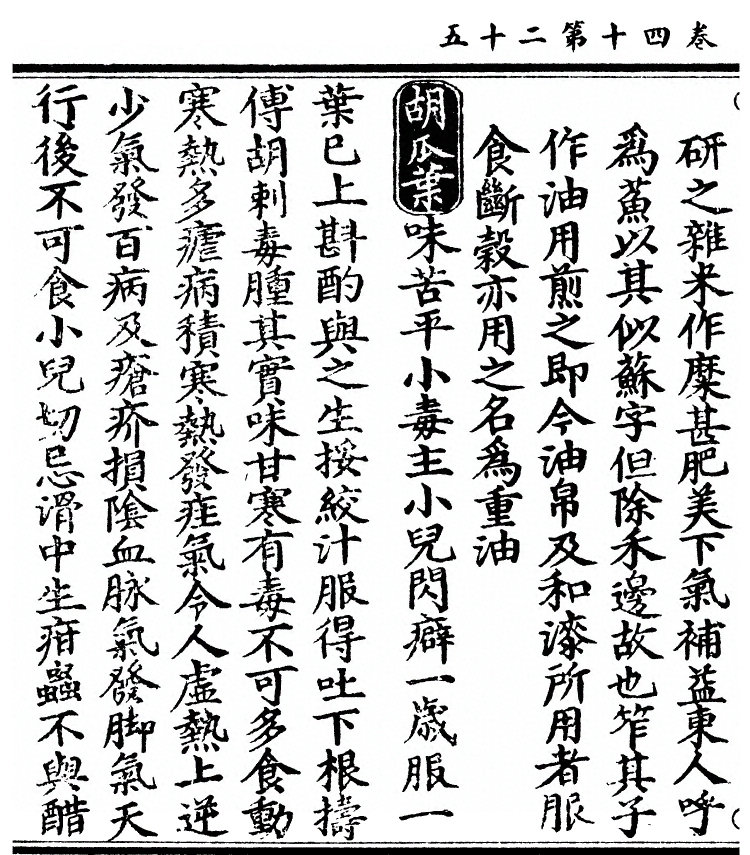 卷四十第二十五
研之雜米作糜甚肥美下氣補益東人呼
爲蕉以其似蘇字但除禾邊故也笮其子
作油用煎之即今油帛及和漆所用者服
食斷穀亦用之名爲重油
胡瓜葉味苦平小毒主小兒閃癖一歲服一
葉已上斟酌與之生挼絞汁服得吐下根擣
傅胡刺毒腫其實味甘寒有毒不可多食動
寒熱多瘧病積寒熱發疰氣令人虛熱上逆
少氣發百病及瘡疥損陰血脉氣發脚氣天
行後不可食小兒切忌滑中生疳蟲不與醋